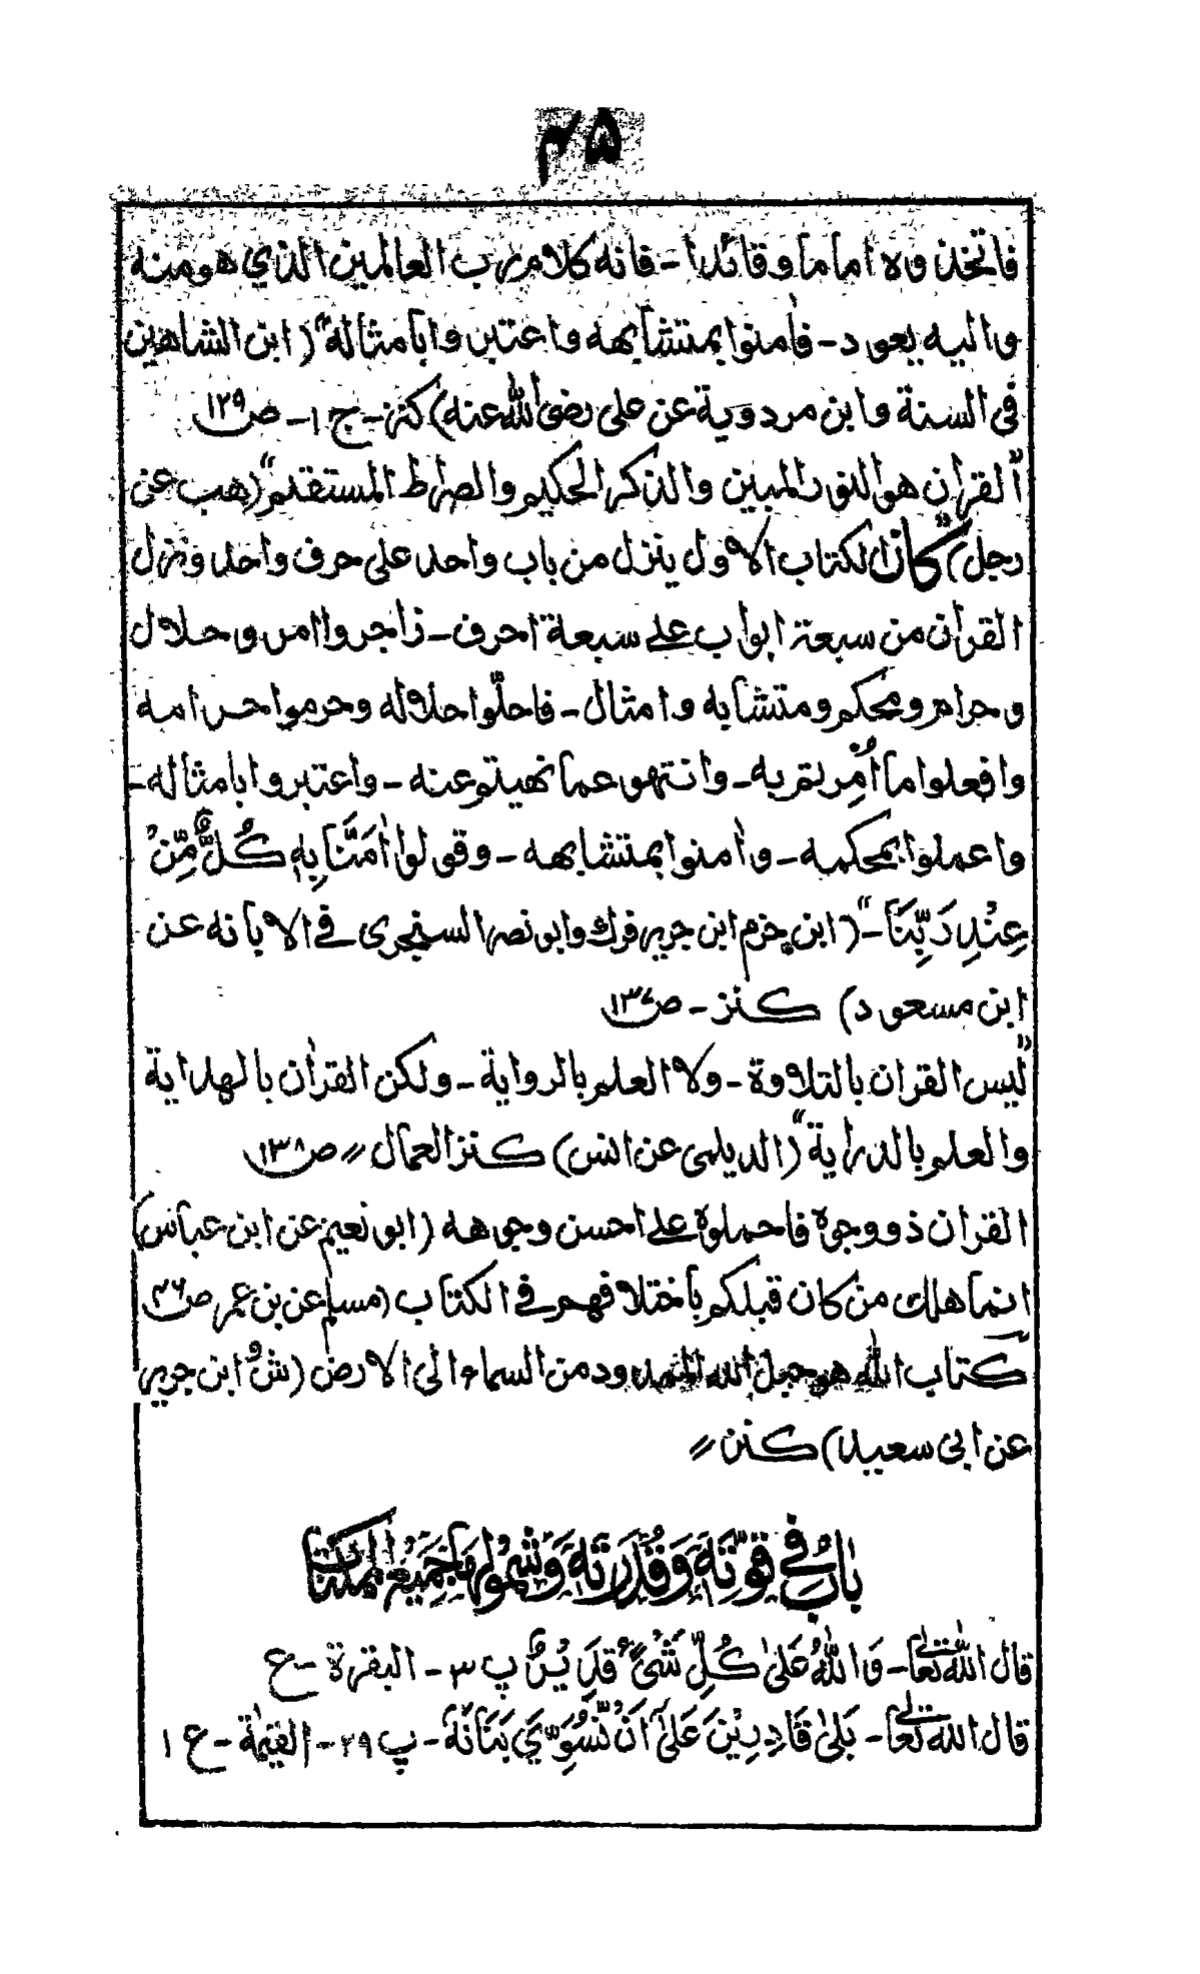 ۴۵
فاتخذوه اماما وقائدا - فانه كلام رب العالمين الذي هو منه
واليه يعود - فاٰمنوا بمتشابهه واعتبروا بامثاله" (ابن الشاهين
فى السنة وابن مردوية عن على رضى الله عنه) كنز - ج ۱ - ص ۱۲۹
"القراٰن هو النور المبين والذكر الحكيم والصراط المستقيم" (هب عن
رجل) "كان الكتاب الاول ينزل من باب واحد على حرف واحد ونزل
القراٰن من سبعة ابواب على سبعة احرف - زاجر واامر وحلال
وحرام ومحكم ومتشابه وامثال - فاحلّوا حلاله وحرموا حرامه
وافعلوا ما اُمِرتم به - وانتهو عما نهيتم عنه - واعتبروا بامثاله -
واعملوا بمحكمه - واٰمنوا بمتشابهه - وقولوا اٰمَنَّا بِهٖ كُلٌّ مِّنْ
عِنْدِ رَبِّنَا -" (ابن حزم ابن جرير فرك وابو نصر السنجرى فى الابانه عن
ابن مسعود) كنز - ص ۱۳۷
"ليس القران بالتلاوة - ولا العلم بالرواية - ولكن القراٰن بالهداية
والعلم بالدراية" (الديلمى عن انس) كنز العمال // ص ۱۳۸
القران ذو وجوة فاحملوة على احسن وجوهه (ابو نعيم عن ابن عباس)
انما هلك من كان قبلكم باختلافهم فى الكتاب (مسلم عن بن عمر ص
كتاب الله هو حبل الله الممدود من السماء الى الارض (ش ابن جرير
عن ابى سعيد) كنز //
بابُ فِي قوّتِهٖ وَقُدْرَتِهٖ وَشُمُولِهَا جَمِيْعِ الْمُمْكِنَات
قال الله تعالٰى - وَاللهُ عَلىٰ كُلِّ شَىْءٍ قَدِيْرٌ پ ۳ - البقرة - ع
قال الله تعالٰى - بَلىٰ قَادِرِيْنَ عَلىٰٓ اَنْ نُّسَوِّيَ بَنَانَهٗ - پ ۲۹ - القيٰمة - ع ۱